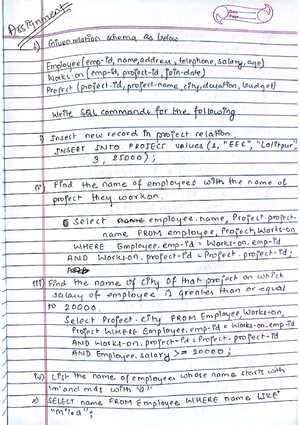 Assignment
Date
Page
1) Given relation schema as below
Employee (emp-id, name, address, telephone, salary, age)
Works-on (emp-id, project-id, join-date)
Project (project-id, project-name, city, duration, budget)
Write SQL commands for the following
i) Insert new record in project relation.
INSERT INTO PROJECT values (1, "EEC", "Lalitpur",
3, 25000);
ii) Find the name of employees with the name of
project they workon.
Select employee.name, Project.project-
name FROM employee, Project, Works-on
WHERE Employee.emp-id = Works-on.emp-id
AND Works-on.project-id = Project.project-id;
iii) Find the name of city of that project on which
salary of employee is greater than or equal
to 20000.
Select Project.city FROM Employee, Works-on,
Project WHERE Employee.emp-id = Works-on.emp-id
AND Works-on.project-id = Project.project-id
AND Employee.salary >= 20000;
iv) List the name of employees whose name starts with
'm' and ends with 'a'
SELECT name FROM Employee WHERE name LIKE
"m%a";